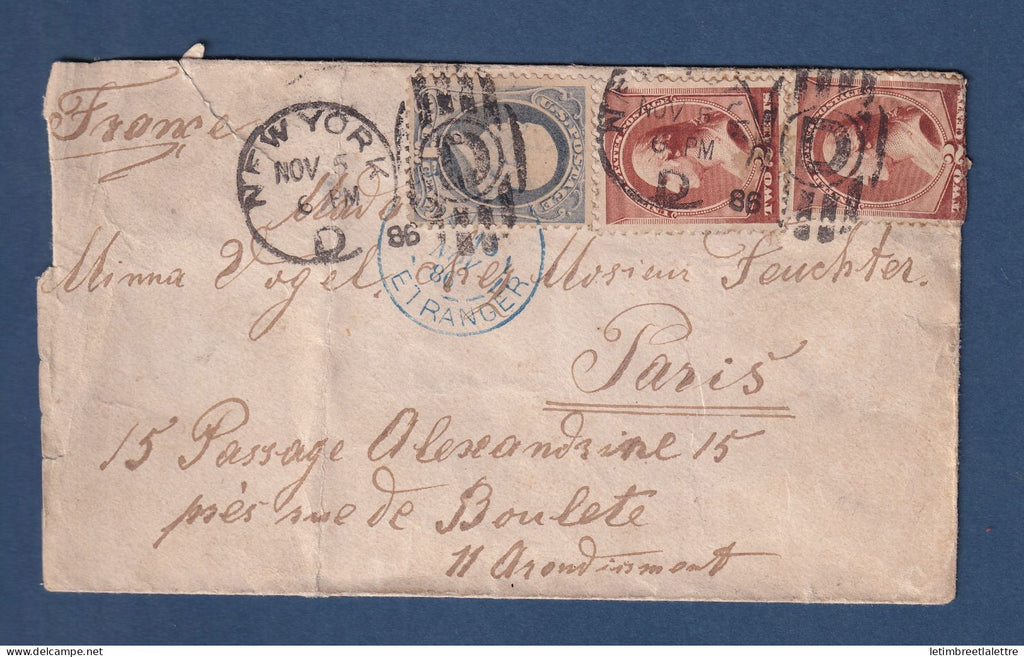 France
NEW YORK
NOV 5
6 PM
D
86
NOV 5
6 PM
D
86
ETRANGER
Minna Vogel, chez Mosieur Feuchter.
Paris
15 Passage Alexandrine 15
près rue de Boulete
11 Arondisement
letimbreetlalettre